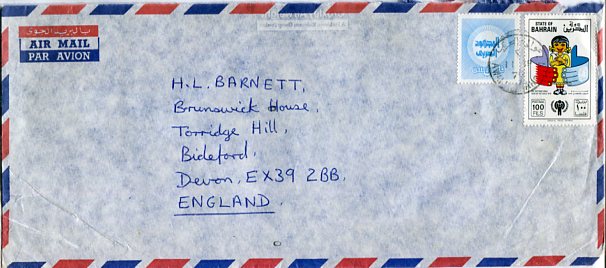 بالبريد الجوي
AIR MAIL
PAR AVION
STATE OF
BAHRAIN
دولة
البحرين
POSTAGE
100
FILS
١٠٠
فلس
H.L. BARNETT,
Brunswick House,
Torridge Hill,
Bideford,
Devon, EX39 2BB.
ENGLAND.